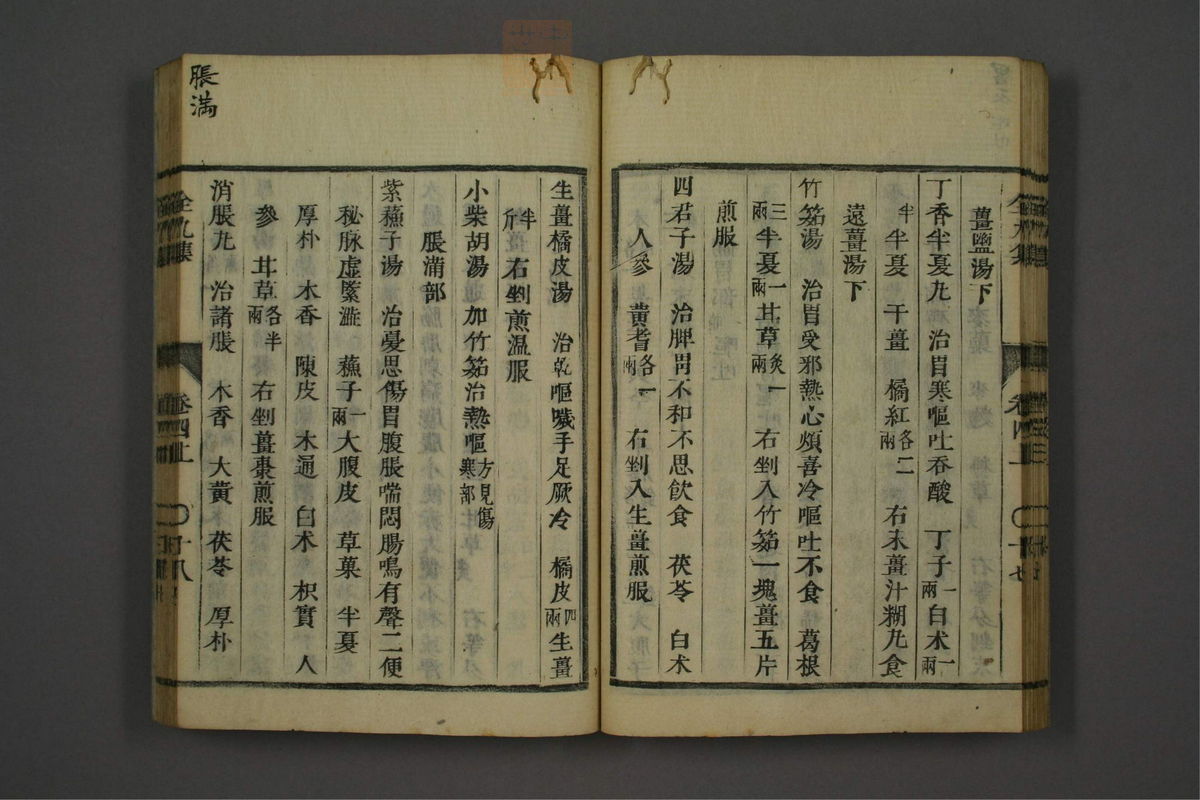 薑鹽湯下
丁香半夏九 治胃寒嘔吐吞酸 丁子一兩白术一兩
半 半夏 干薑 橘紅各二兩 右末薑汁糊九食
遠薑湯下
竹筎湯 治胃受邪熱心煩喜冷嘔吐不食 葛根
三兩半夏一兩甘草炙一兩 右剉入竹筎一塊薑五片
煎服
四君子湯 治脾胃不和不思飲食 茯苓 白术
人參 黃耆各一兩 右剉入生薑煎服
生薑橘皮湯 治乾嘔噦手足厥冷 橘皮四兩生薑
半斤 右剉煎溫服
小柴胡湯 加竹筎治熱嘔方見傷寒部
脹滿部
紫蘇子湯 治憂思傷胃腹脹喘悶腸鳴有聲二便
秘脉虛緊澁 蘇子一兩大腹皮 草菓 半夏
厚朴 木香 陳皮 木通 白术 枳實 人
參 甘草各半兩 右剉薑棗煎服
消脹九 治諸脹 木香 大黃 茯苓 厚朴
脹滿
全九集
卷四
十七
全九集
卷四上
十八